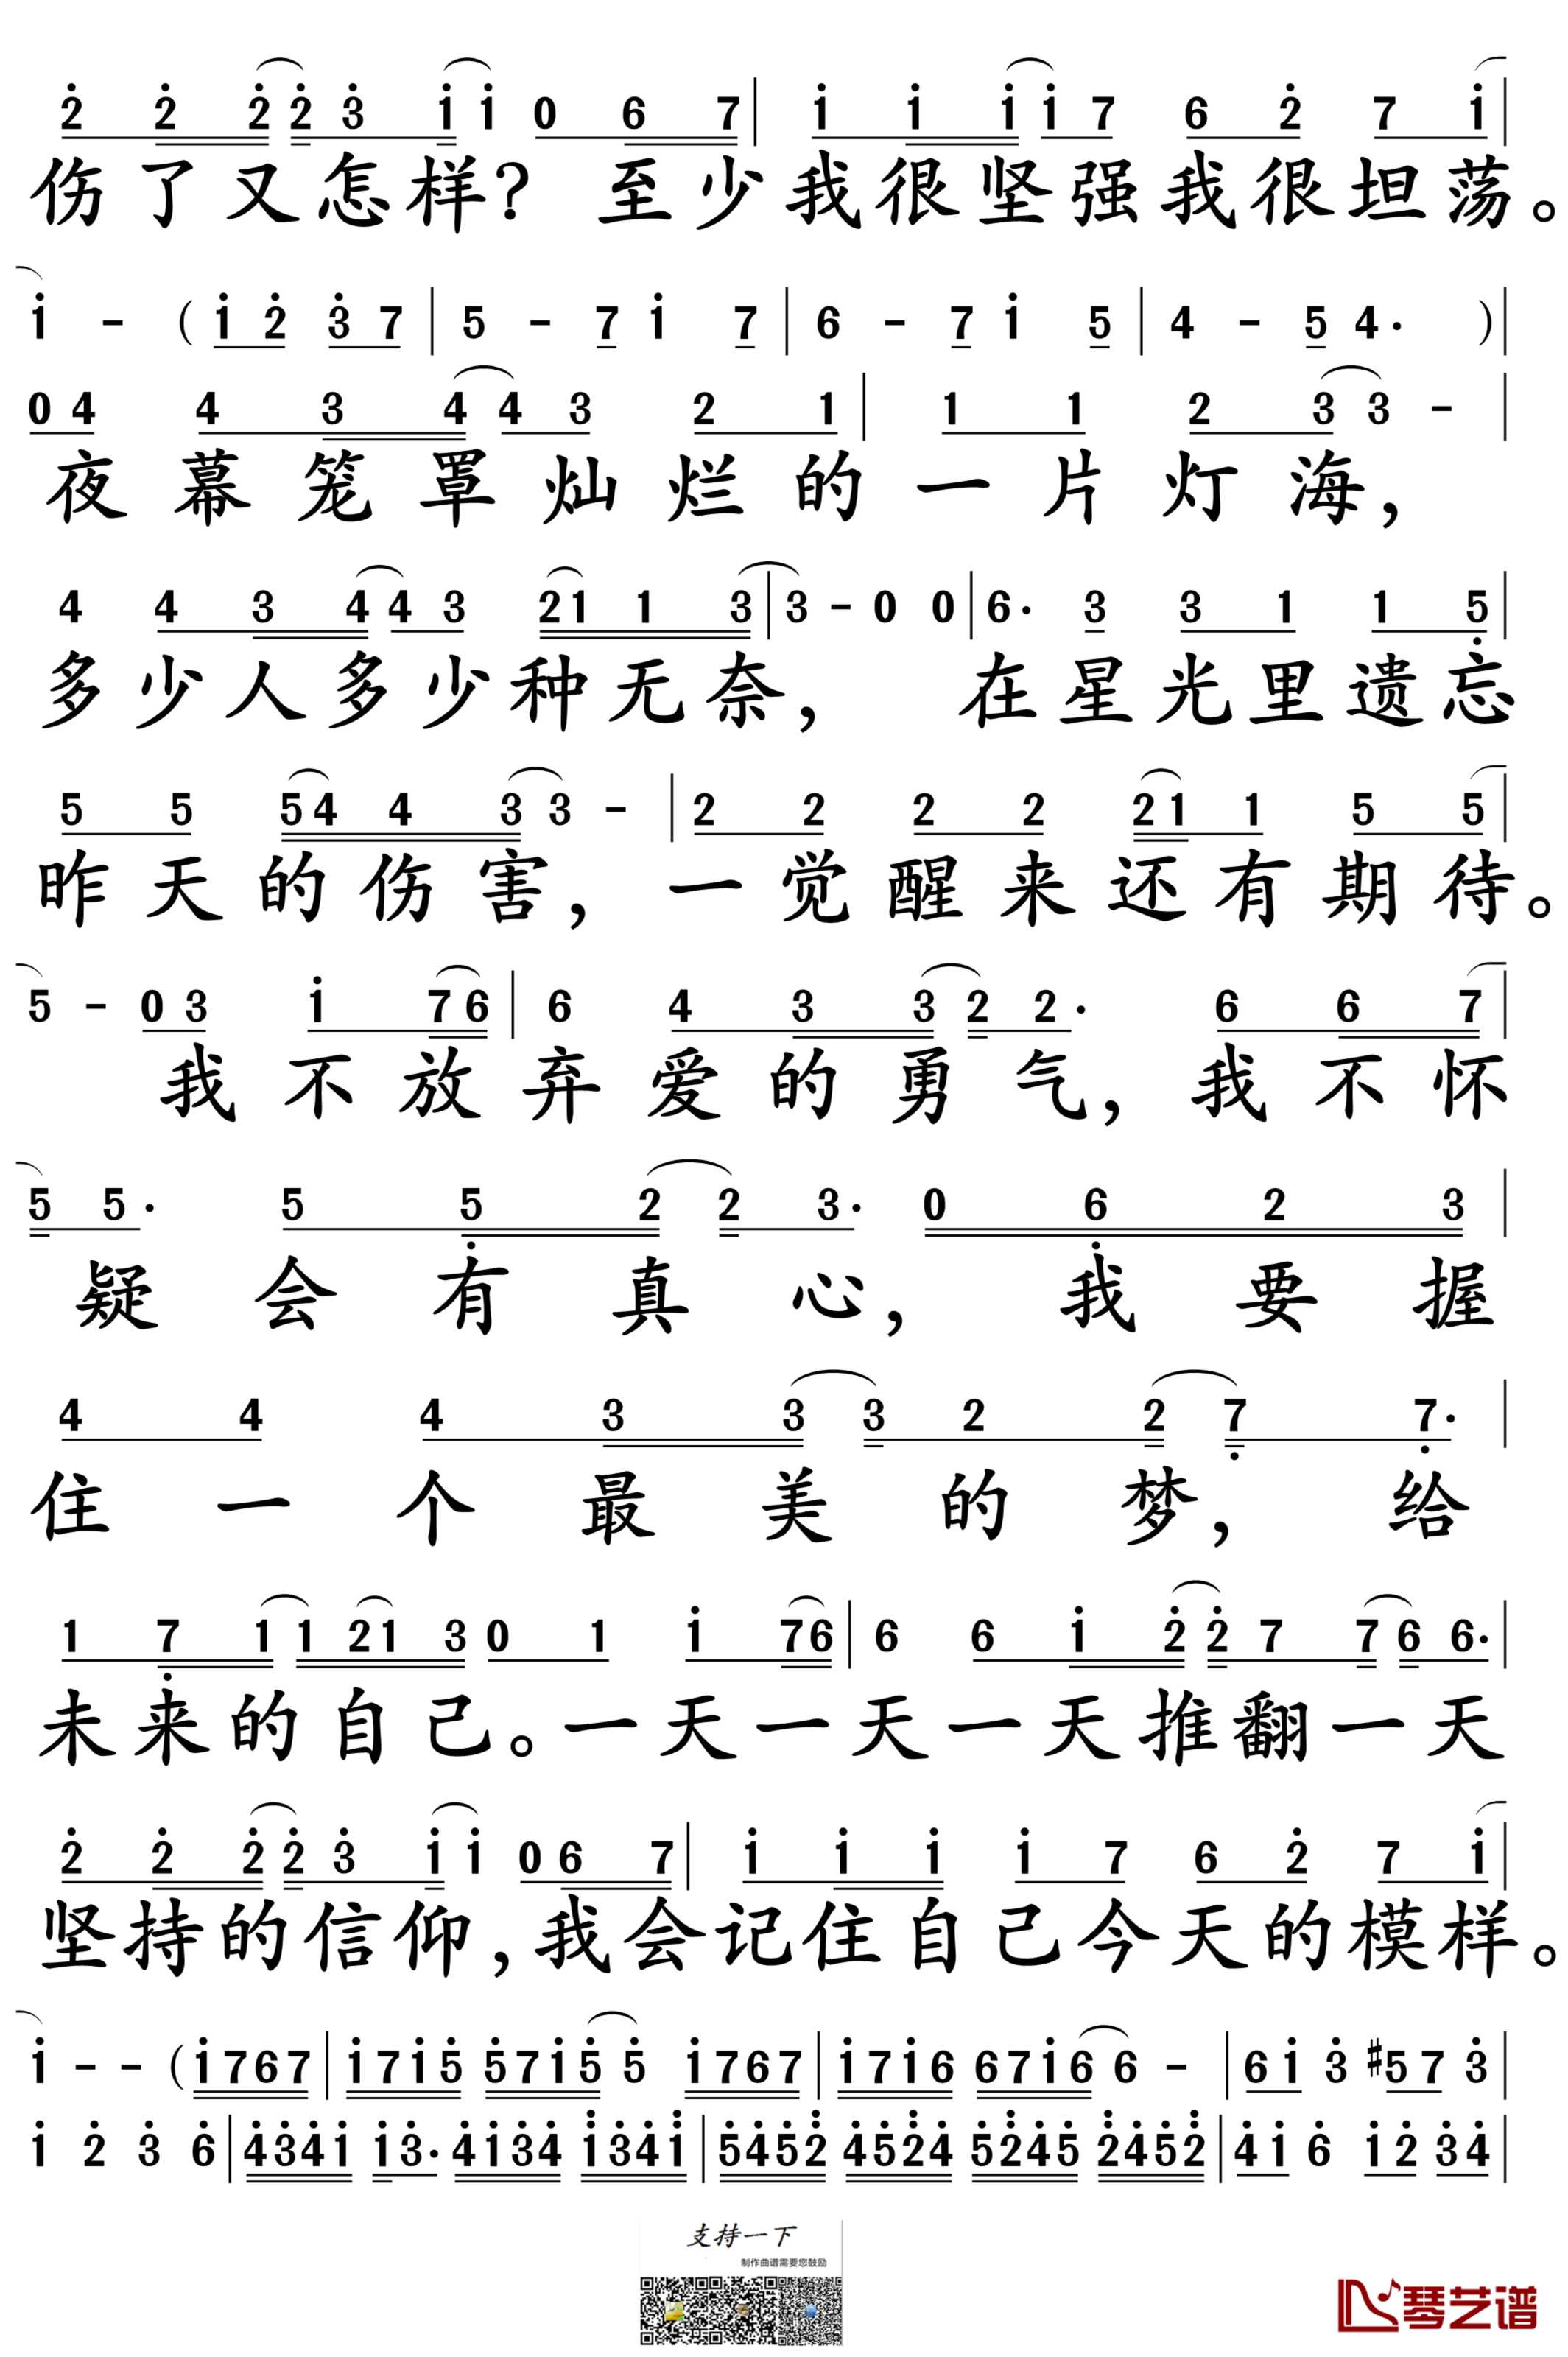 2̇ 2̇ 2̇ 2̇ 3̇ 1̇ 1̇ 0 6 7 | 1̇ 1̇ 1̇ 1̇ 7 6 2̇ 7 1̇ |
伤了又怎样? 至少我很坚强我很坦荡。
1̇ - ( 1̇ 2̇ 3̇ 7 | 5 - 7 1̇ 7 | 6 - 7 1̇ 5 | 4 - 5 4· ) |
0 4 4 3 4 4 3 2 1 | 1 1 2 3 3 - |
夜幕笼罩灿烂的一片灯海,
4 4 3 4 4 3 2 1 1 3 | 3 - 0 0 | 6· 3 3 1 1 5̣ |
多少人多少种无奈, 在星光里遗忘
5 5 5 4 4 3 3 - | 2 2 2 2 2 1 1 5 5 |
昨天的伤害, 一觉醒来还有期待。
5 - 0 3 1̇ 7 6 | 6 4 3 3 2 2· 6 6 7 |
我不放弃爱的勇气, 我不怀
5 5· 5 5̣ 2 2 3· 0 6̣ 2 3 |
疑会有真心, 我要握
4 4 4 3 3 3 2 2 7̣ 7̣· |
住一个最美的梦, 给
1 7̣ 1 1 2 1 3 0 1 1̇ 7 6 | 6 6 1̇ 2̇ 2̇ 7 7 6 6· |
未来的自己。一天一天一天推翻一天
2̇ 2̇ 2̇ 2̇ 3̇ 1̇ 1̇ 0 6 7 | 1̇ 1̇ 1̇ 1̇ 7 6 2̇ 7 1̇ |
坚持的信仰, 我会记住自己今天的模样。
1̇ - - ( 1̇ 7 6 7 | 1̇ 7 1̇ 5̇ 5̇ 7 1̇ 5̇ 5̇ 1̇ 7 6 7 | 1̇ 7 1̇ 6 6 7 1̇ 6 6 - | 6 1̇ 3̇ #5 7 3̇ |
1̇ 2̇ 3̇ 6̇ | 4̇ 3̇ 4̇ 1̇ 1̇ 3̇· 4̇ 1̇ 3̇ 4̇ 1̈ 3̇ 4̇ 1̈ | 5̇ 4̇ 5̇ 2̈ 4̇ 5̇ 2̈ 4̇ 5̇ 2̈ 4̇ 5̇ 2̈ 4̇ 5̇ 2̈ | 4̇ 1̇ 6̇ 1̇ 2̇ 3̇ 4̇ |
支持一下
制作曲谱需要您鼓励
琴艺谱